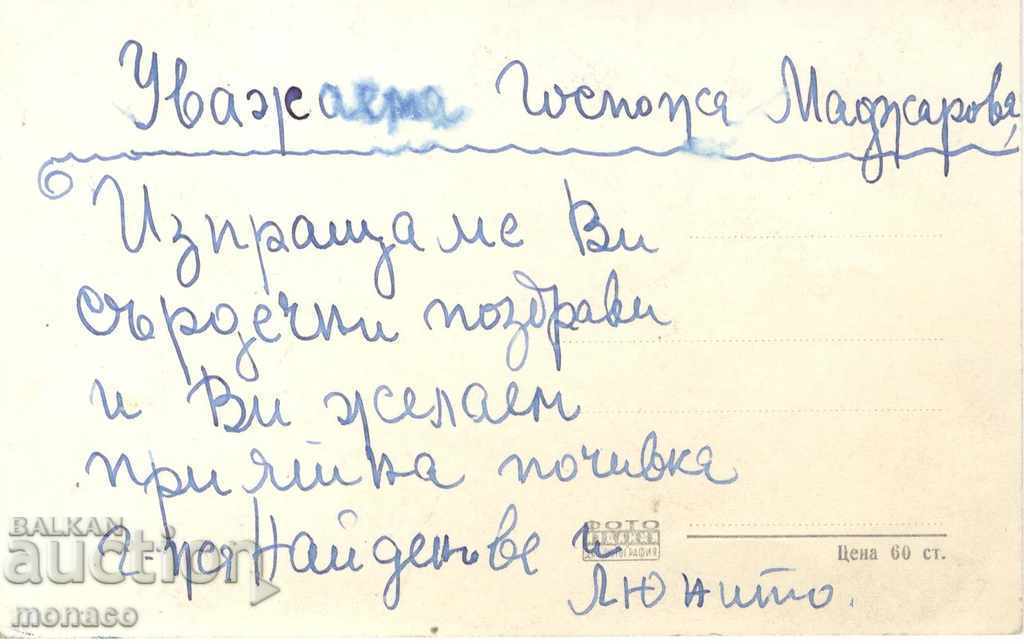 Уважаема Госпожа Маджарова,
Изпращаме Ви
сърдечни поздрави
и Ви желаем
приятна почивка
Найденове и
Люнито.
ФОТО
Цена 60 ст.
BALKAN
auction
monaco